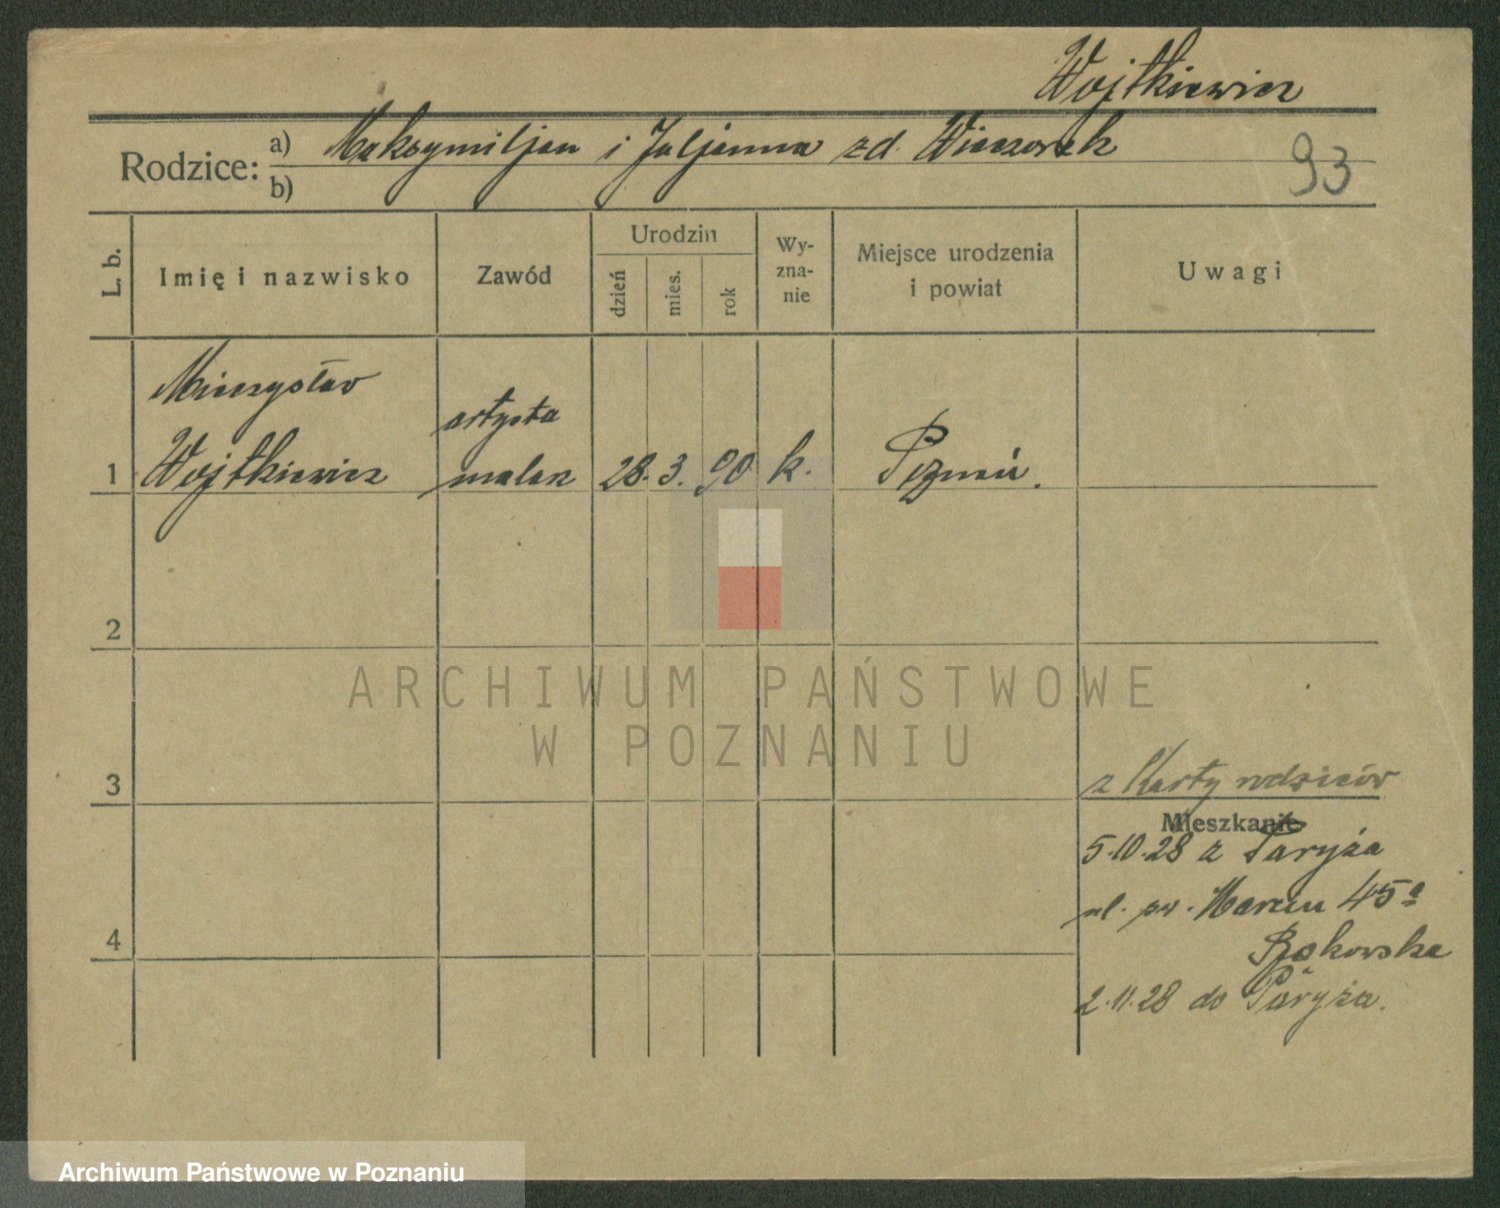 Wojtkiewicz
Rodzice: a) Maksymiljan i Juljanna zd. Wieczorek
b)
93
L. b.
Imię i nazwisko
Zawód
Urodzin
dzień
mies.
rok
Wy-
zna-
nie
Miejsce urodzenia
i powiat
Uwagi
Mieczysław
artysta
1 Wojtkiewicz malarz 28. 3. 90 k. Poznań.
2
ARCHIWUM PAŃSTWOWE
W POZNANIU
3
z Karty rodziców
Mieszkanie
5.10.28 z Paryża
ul. św. Marcin 45a
4
2.11.28 do Paryża.
Archiwum Państwowe w Poznaniu